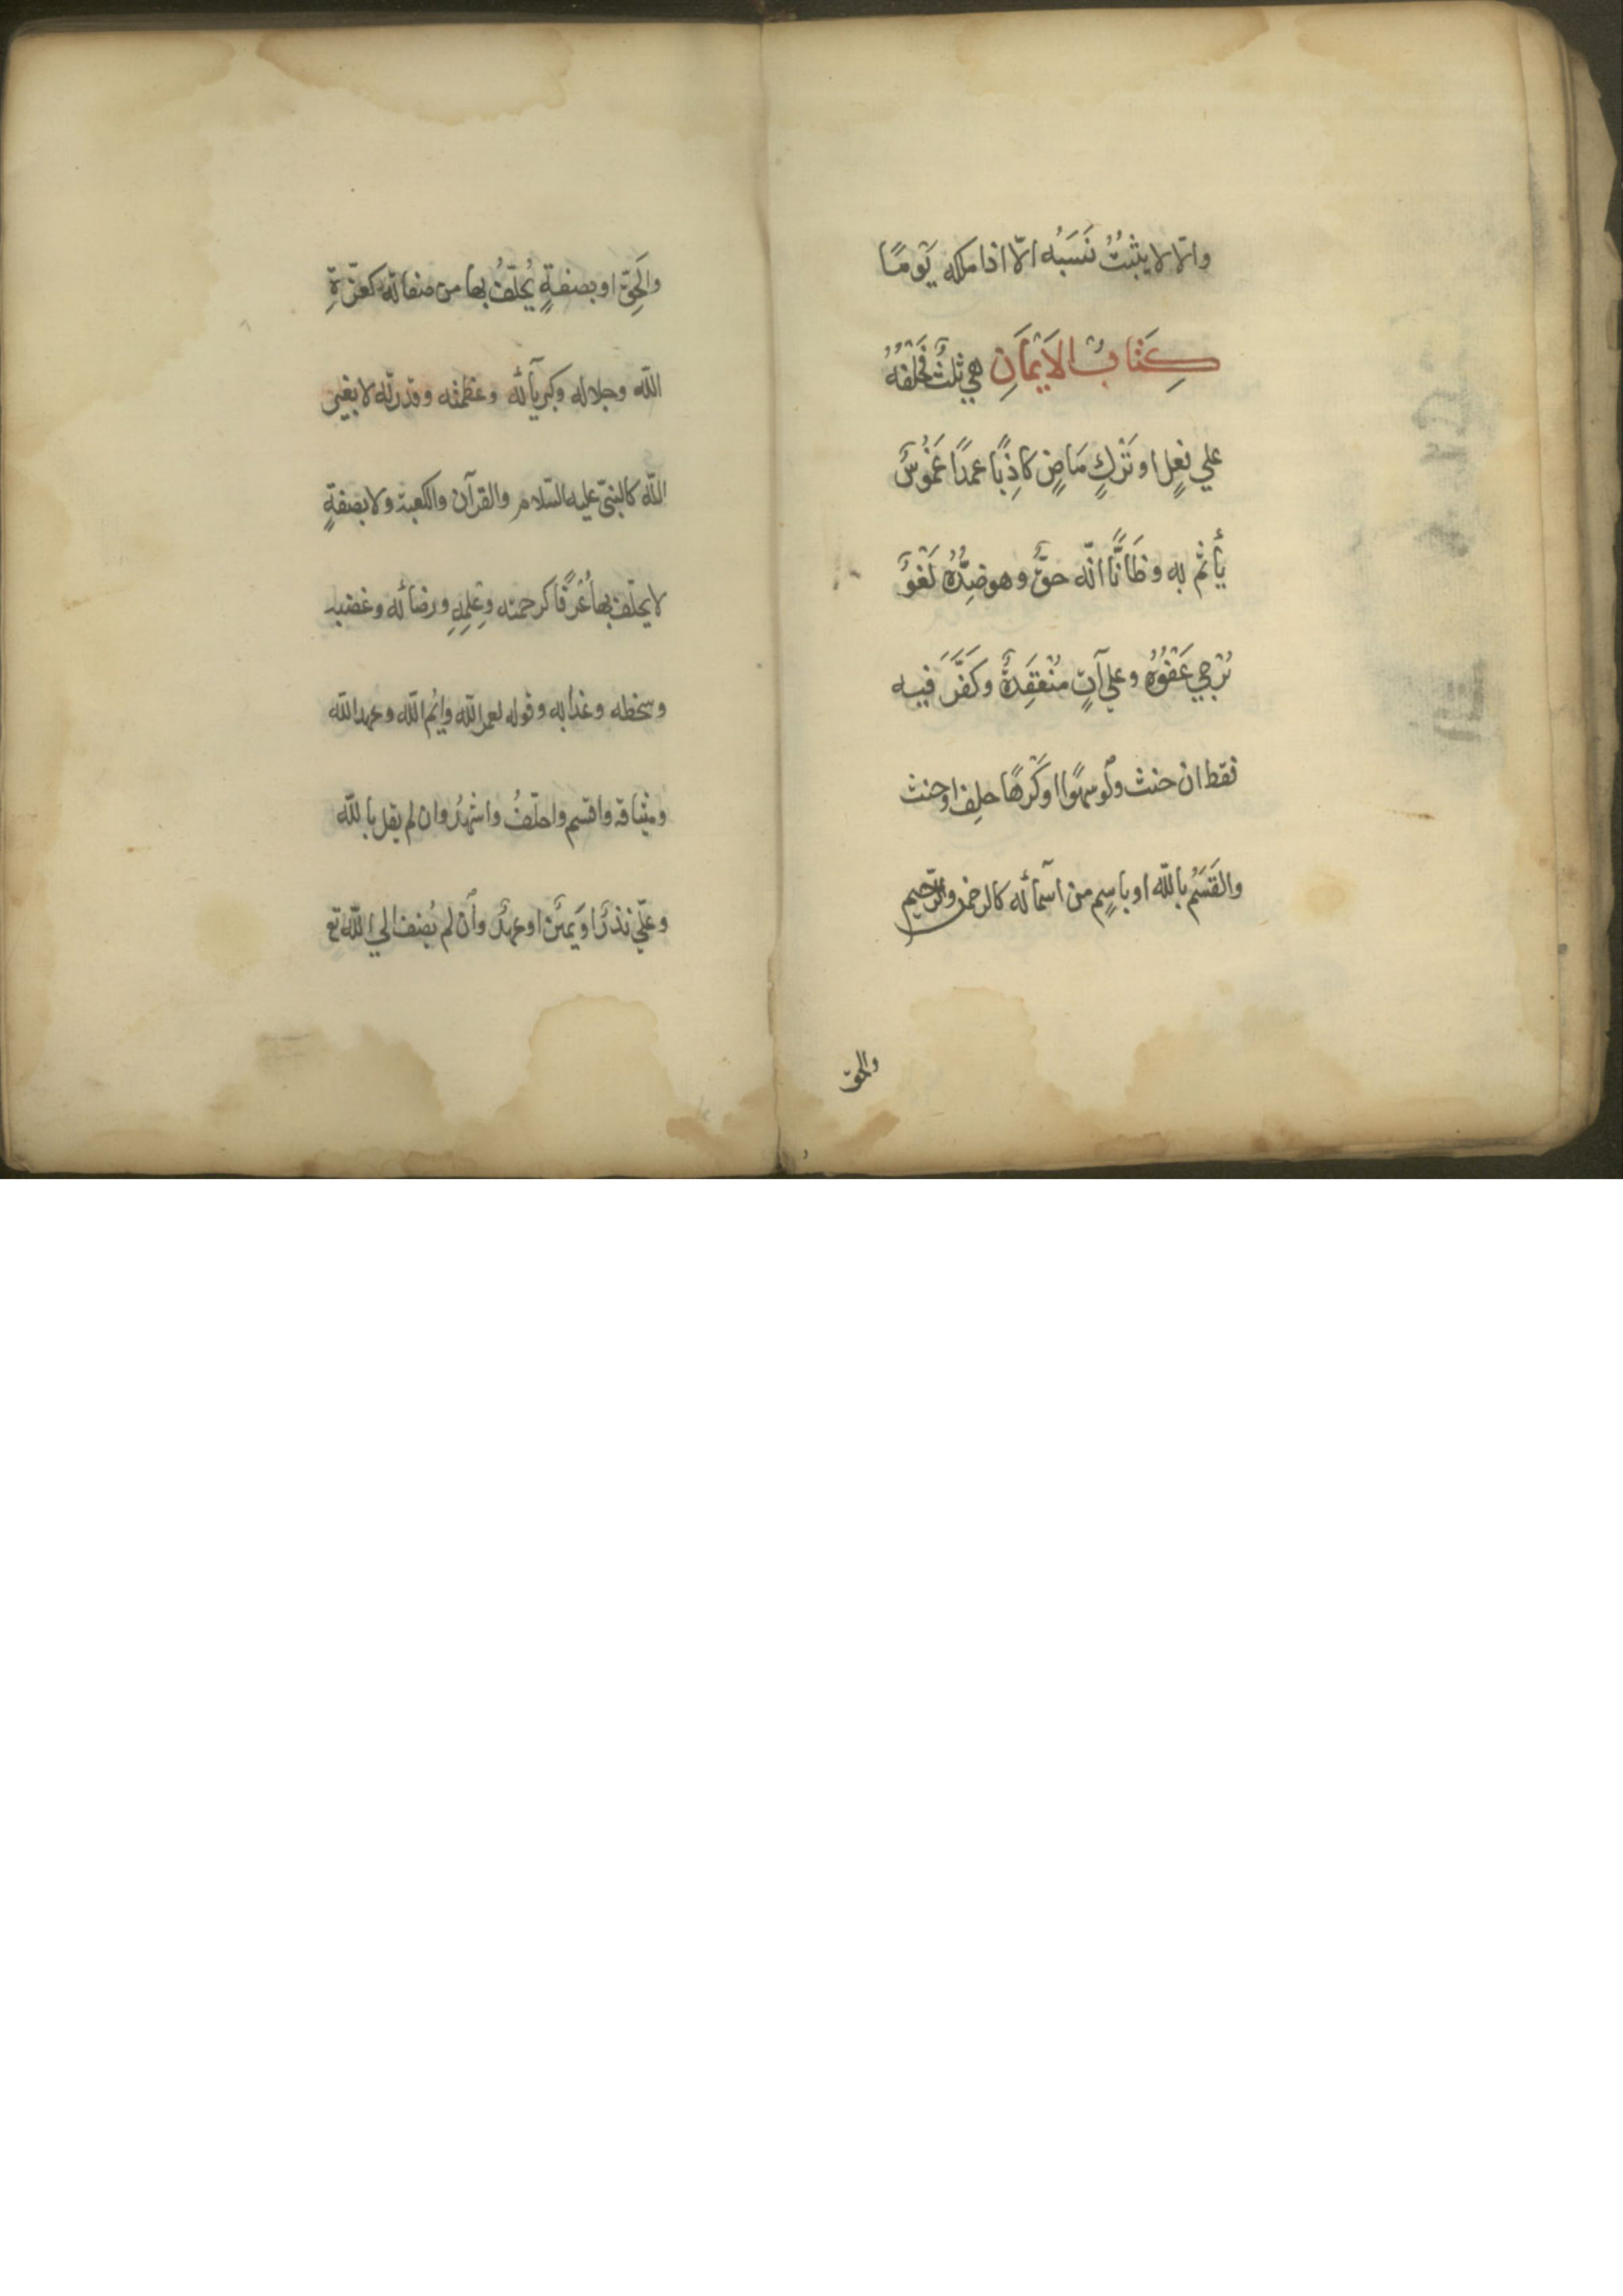 والا لا يثبتُ نَسَبُه الّا اذا ملكه يَومًا
كِتَابُ الاَيْمَانِ هي ثلثٌ فَحَلْفُهُ
علي فعلٍ او تَرْكٍ مَاضٍ كاذِبًا عمدًا غَمُوسٌ
يأثم به وظَانًّا انّه حقٌّ وهو ضِدُّهُ لَغْوٌ
يُرْجي عَفْوُهُ وعلي آتٍ مُنْعَقِدَةٌ وكَفَّرَ فيه
فقط ان حنث ولو سهوًا او كَرْهًا حلف او حنث
والقَسَمُ بالله او باسمٍ من اسمائه كالرحمن والرّحيم
والحق
والحَقِّ او بصفةٍ يُحلَفُ بها من صفاته كعزّةِ
الله وجلاله وكبريائه وعظمته وقدرته لا بغير
الله كالنبيّ عليه السّلام والقرآن والكعبة ولا بصفةٍ
لا يحلف بها عُرفًا كرحمته وعِلمِهِ ورضائه وغضبه
وسخطه وعذابه وقوله لعمر الله وايْم الله وعهد الله
وميثاقه واقسم واحلفُ واشهدُ وان لم يقل بالله
وعليّ نذرٌ او يَمينٌ او عهدٌ وان لم يُضِف الي الله تع